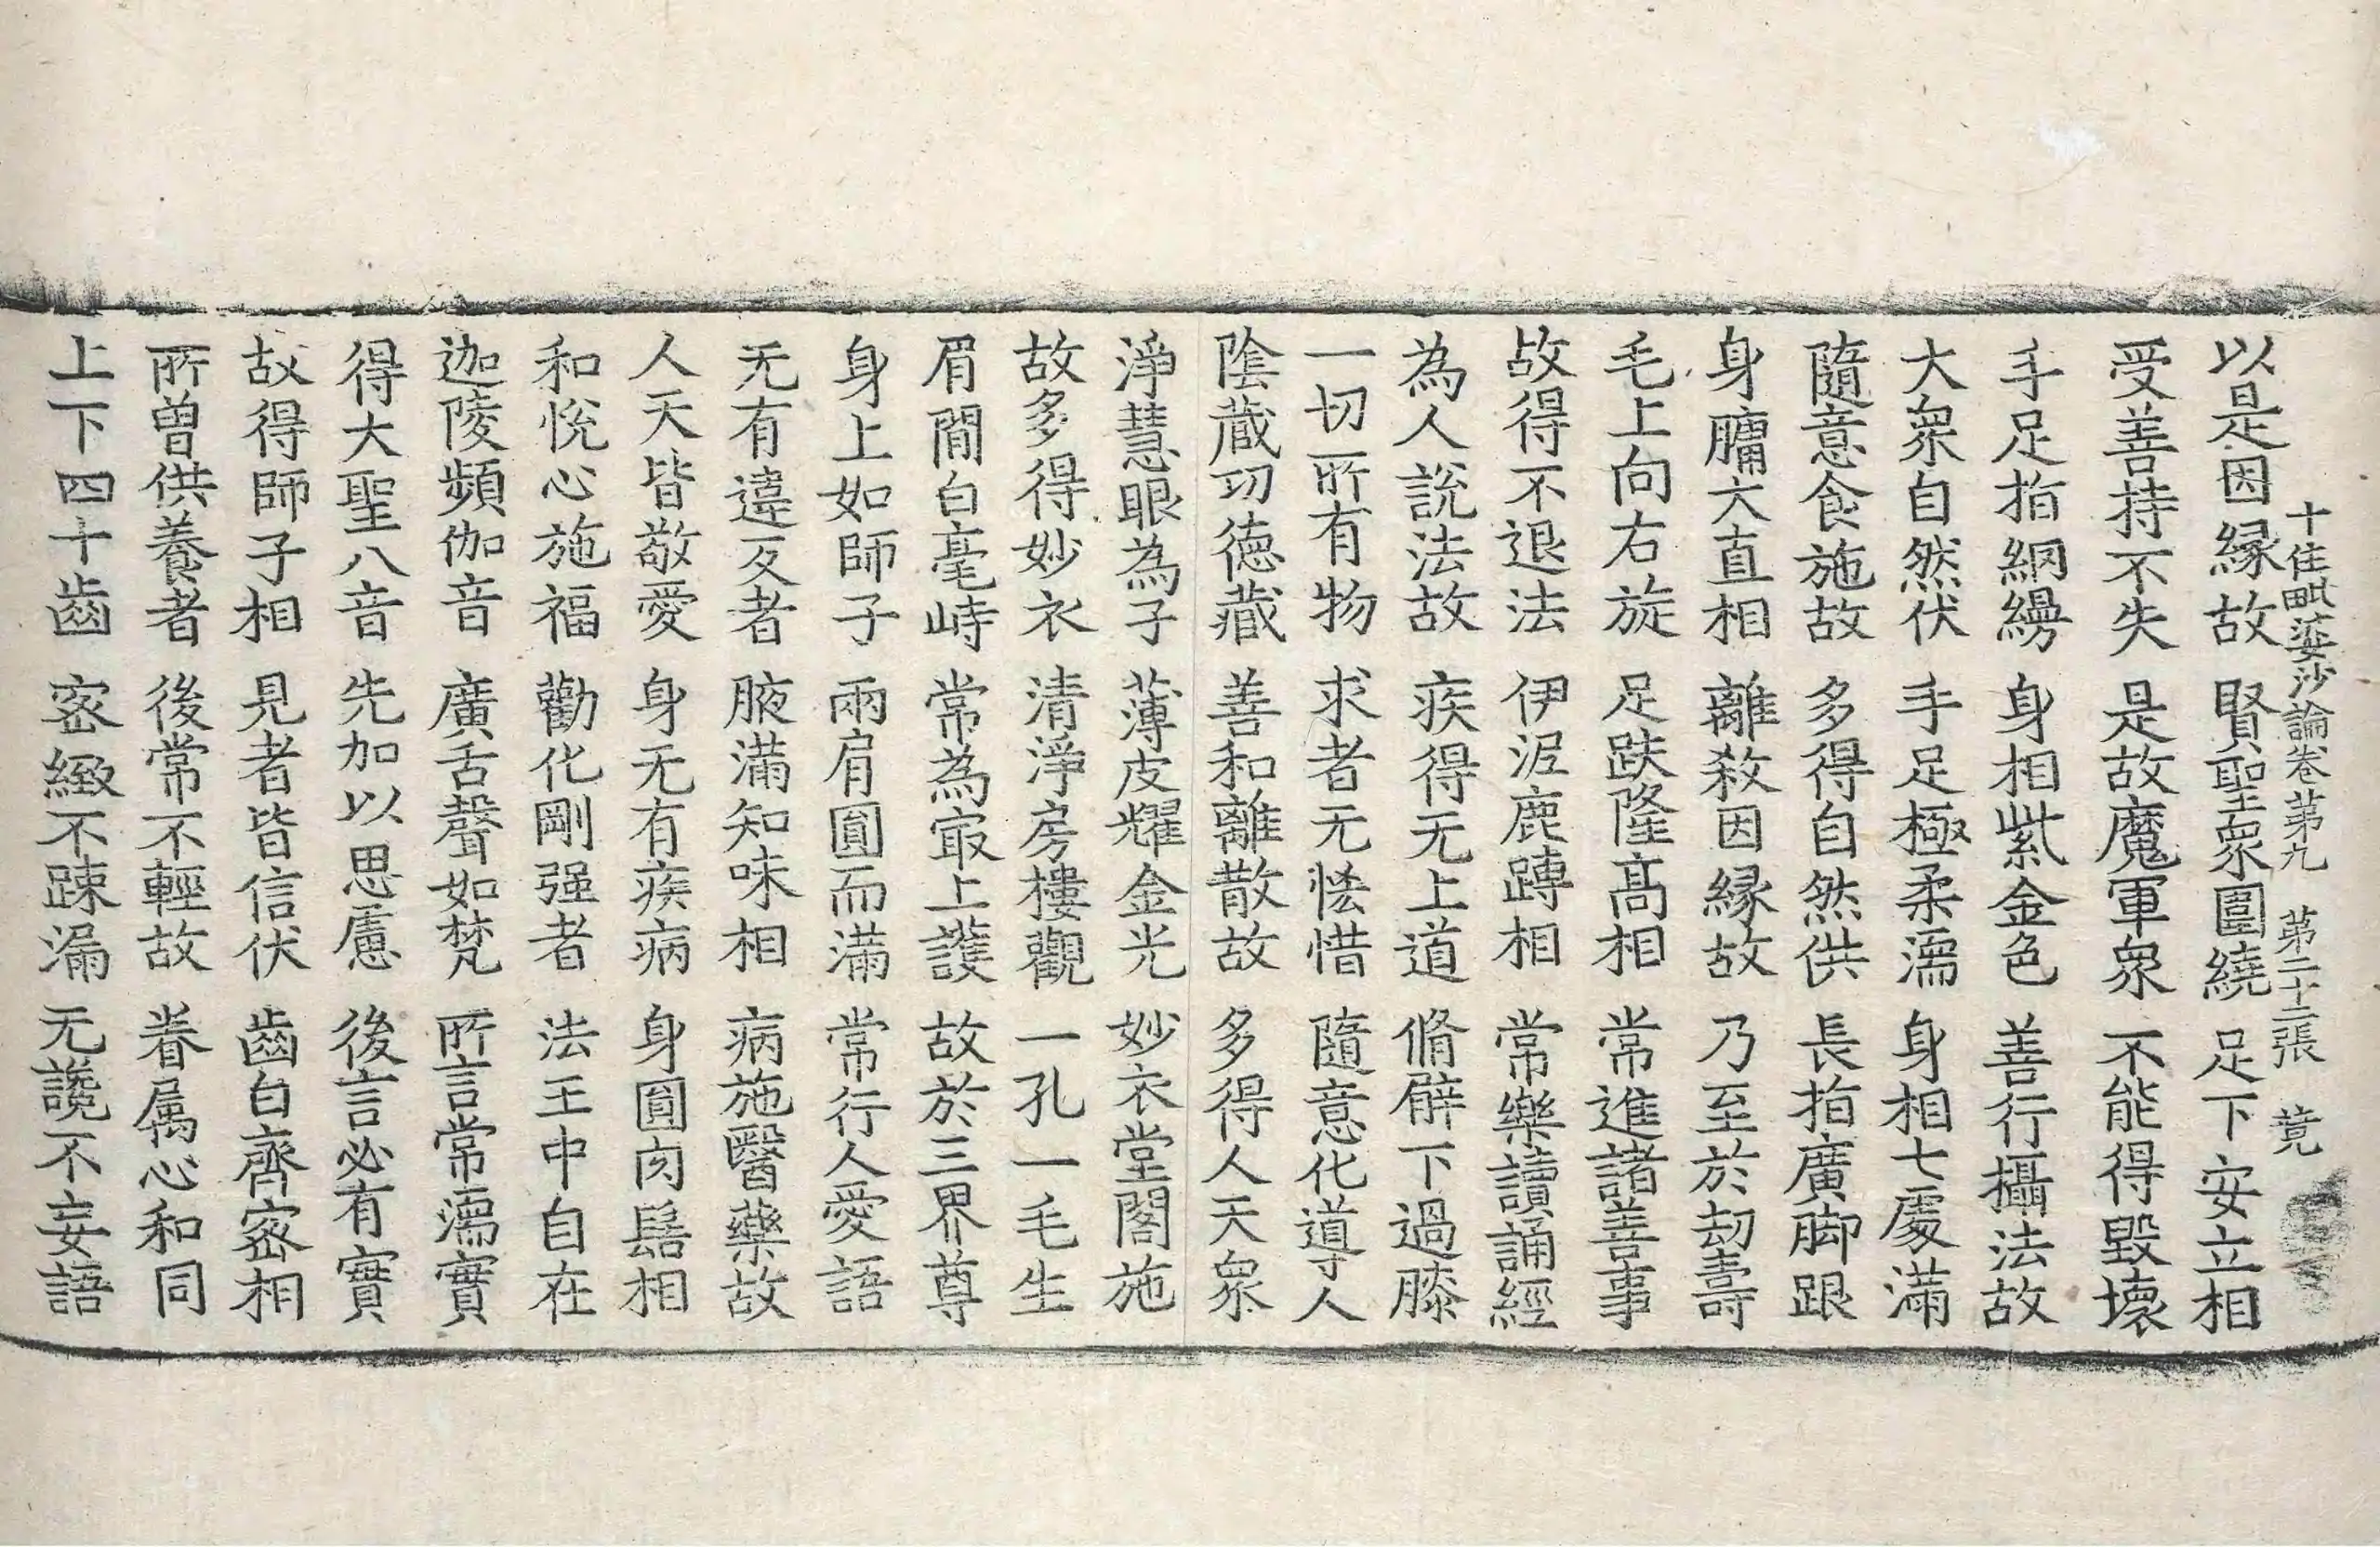 十住毗婆沙論卷苐九　苐二十三張　䔈
以是因緣故　賢聖衆圍繞　足下安立相
受善持不失　是故魔軍衆　不能得毀壞
手足指網縵　身相紫金色　善行攝法故
大衆自然伏　手足極柔濡　身相七處滿
隨意食施故　多得自然供　長指廣脚跟
身𦟛大直相　離殺因緣故　乃至於劫壽
毛上向右旋　足趺隆髙相　常進諸善事
故得不退法　伊泥鹿䏝相　常樂讀誦經
為人說法故　疾得无上道　脩臂下過膝
一切所有物　求者无恡惜　隨意化導人
陰藏功德藏　善和離散故　多得人天衆
淨慧眼為子　薄皮耀金光　妙衣堂閣施
故多得妙衣　清淨房樓觀　一孔一毛生
眉間白毫峙　常為㝡上護　故於三界尊
身上如師子　兩肩圓而滿　常行人愛語
无有違反者　腋滿知味相　病施醫藥故
人天皆敬愛　身无有疾病　身圓肉髻相
和悅心施福　勸化剛强者　法王中自在
迦陵頻伽音　廣舌聲如梵　所言常濡實
得大聖八音　先加以思慮　後言必有實
故得師子相　見者皆信伏　齒白齊密相
所曽供養者　後常不輕故　眷属心和同
上下四十齒　密緻不踈漏　无讒不妄語